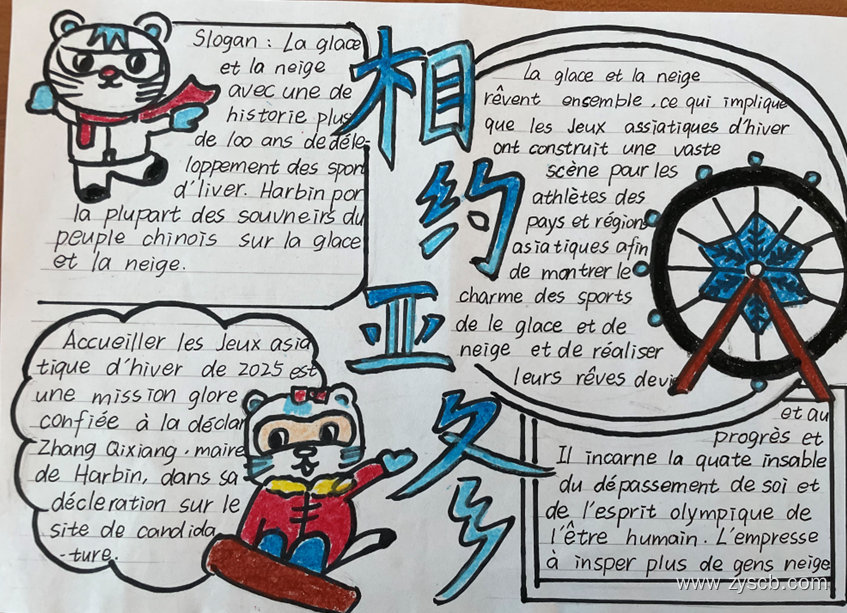 Slogan : La glace
et la neige
avec une de
historie plus
de 100 ans de déle-
loppement des sport
d'liver. Harbin por
la plupart des souvneirs du
peuple chinois sur la glace
et la neige.
相约亚冬
La glace et la neige
rêvent ensemble, ce qui implique
que les Jeux assiatiques d'hiver
ont construit une vaste
scène pour les
athlètes des
pays et régions
asiatiques afin
de montrer le
charme des sports
de le glace et de
neige et de réaliser
leurs rêves devi
Accueiller les Jeux asia
tique d'hiver de 2025 est
une mission glore
confiée à la déclar
Zhang Qixiang, maire
de Harbin, dans sa
décleration sur le
site de candida
-ture.
et au
progrès et
Il incarne la quate insable
du dépassement de soi et
de l'esprit olympique de
l'être humain. L'empresse
à insper plus de gens neige
www.zyscb.com